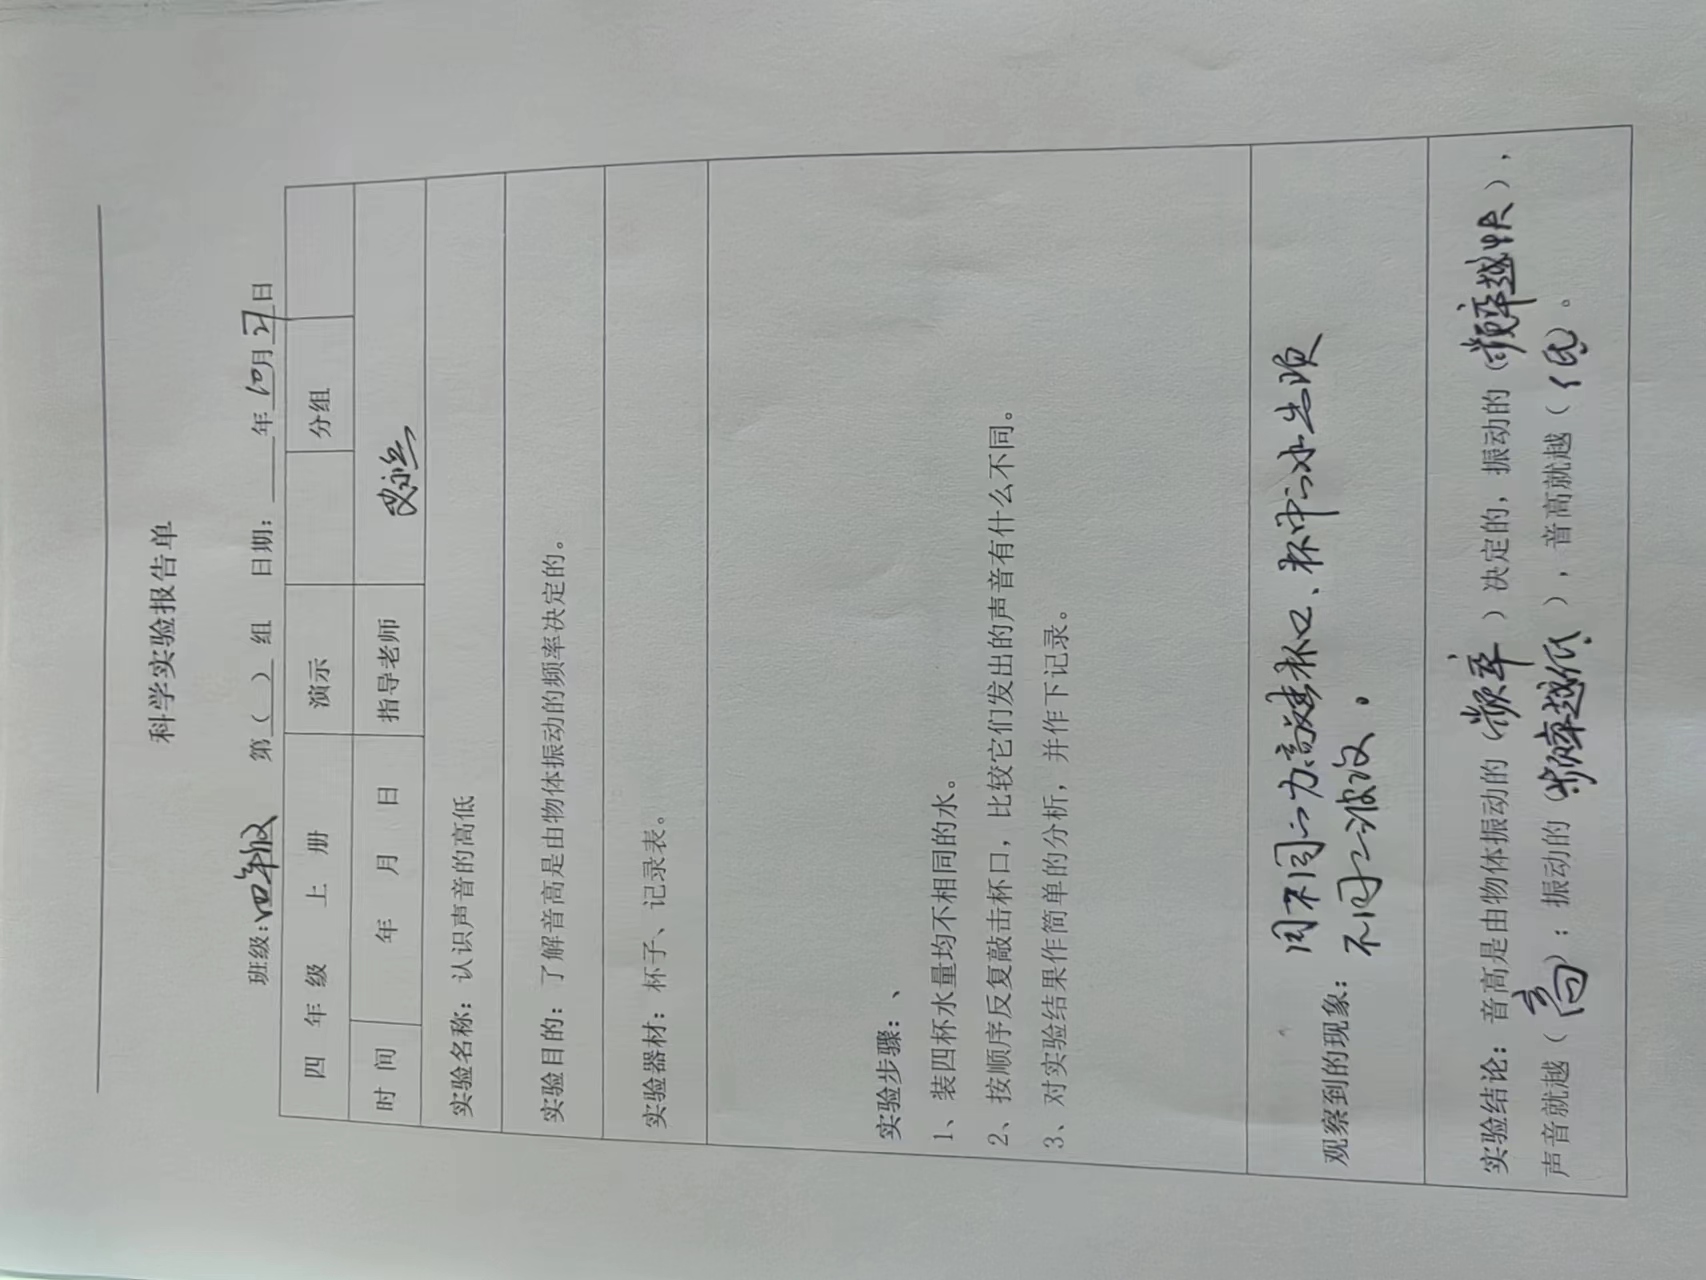 科学实验报告单
班级:四年级 第( )组 日期:___年10月21日
四 年 级 上 册 演示 分组
时 间 年 月 日 指导老师
实验名称:认识声音的高低
实验目的:了解音高是由物体振动的频率决定的。
实验器材:杯子、记录表。
实验步骤:、
1、装四杯水量均不相同的水。
2、按顺序反复敲击杯口,比较它们发出的声音有什么不同。
3、对实验结果作简单的分析,并作下记录。
观察到的现象:用不同的力敲击杯口、杯中的水出现
不同的波纹.
实验结论:音高是由物体振动的(频率)决定的,振动的(频率越快),
声音就越(高);振动的(频率越低),音高就越(低)。